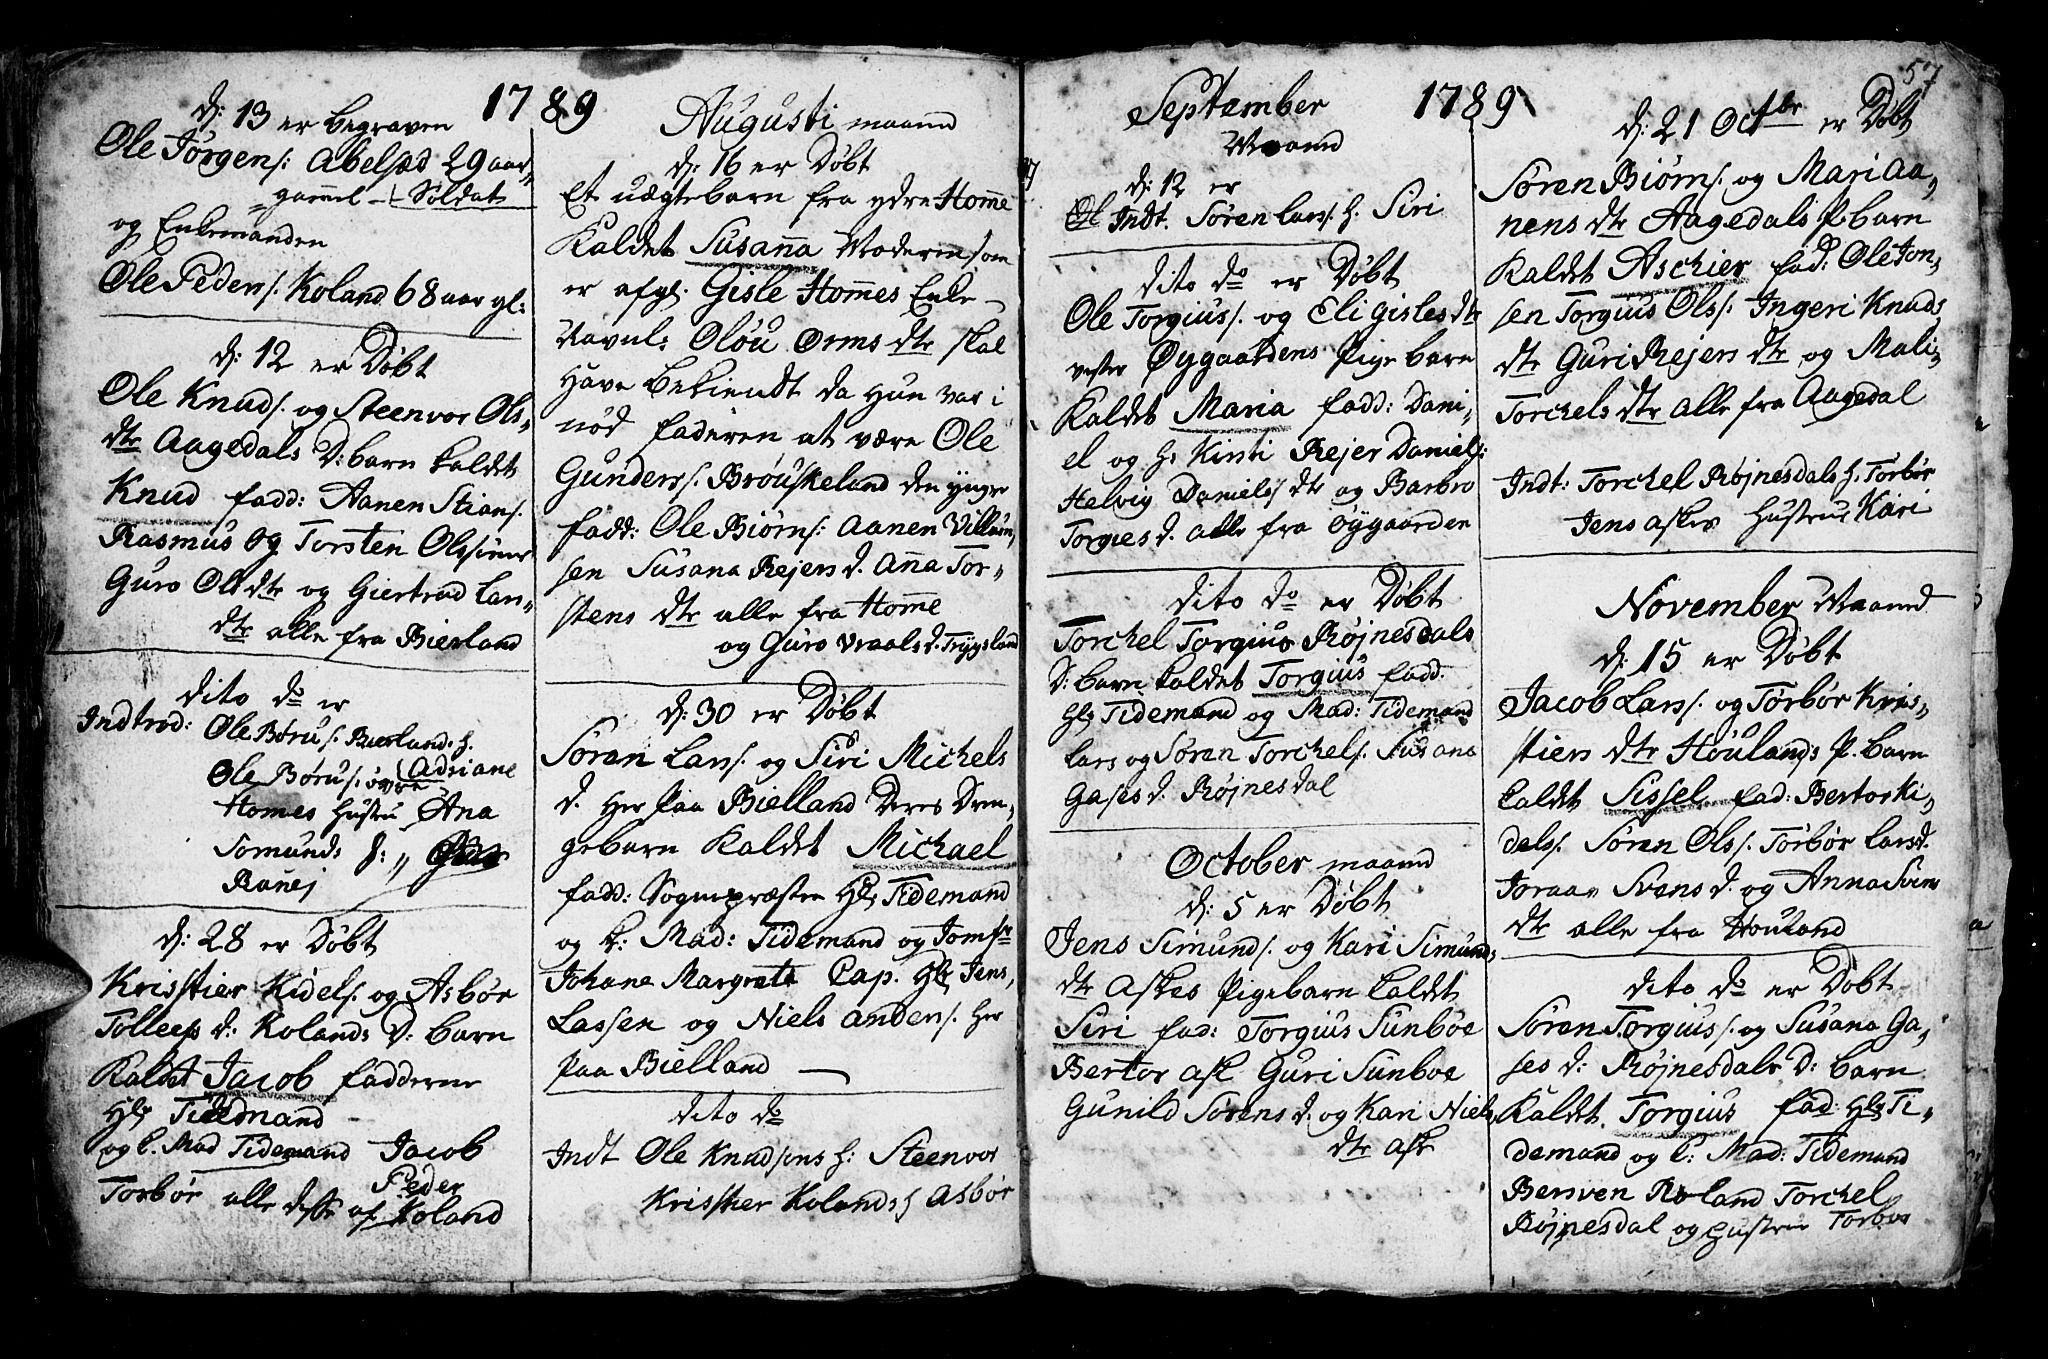 1789
d: 13 er begraven
Ole Jørgens: Abelsæd 29 aar
gammel - Soldat
og Enkemanden
Ole Peders. Koland 68 aar gl:
d: 12 er Døbt
Ole Knuds. og Steenvor Ols,
dtr Aagedals D: barn kaldet
Knud fadd: Aanen Stians.
Rasmus og Torsten Olssønner
Guro Ols dtr og Giertrud Lar,
dtr alle fra Bierland
dito do er
Indtrod: Ole Børus. Bierlands h.
Ole Børus. øvre Adriane
Homes Hustru Ana
Tomunds
Ranej
d: 28 er Døbt
Kristier Kidels. og Asbør
Tollefs d: Kolands D: barn
Kaldet Jacob fadderne
Hr Tidemand
og k. Mad Tidemand Jacob
Peder
Torbør alle disse af Koland
Augusti maaned
d: 16 er Døbt
Et uægte barn fra ydre Homme
Kaldet Susanna Moderen som
er afgl. Gisle Hommes Enke
Navnl: Olou Orms dtr skal
Have bekiendt da hun var i
nød faderen at være Ole
Gunders. Brøuskeland den yngre
fadd: Ole Biørns: Aanen Villum,
sen Susana Rejers d. Anna Tor,
stens dtr alle fra Homme
og Guro Vraals d. Trygsland
d: 30 er Døbt
Søren Lars. og Siri Michels
d. her paa Bielland Deres Dren,
gebarn Kaldet Michael
fadd: Sognepræsten Hr Tidemand
og k: Mad: Tidemand og Jomfr
Johane Margrete Pap. Hr Jens,
Lassen og Niels Anders. her
paa Bielland
dito do
Indt Ole Knudsens h: Steenvor
Kristier Kolands h Asbør
September 1789
Maaned
d: 12 er
Indt. Søren Lars. h. Siri
dito do er Døbt
Ole Torgius. og Eli Gisles dtr
vester Øygaardens Pige barn
Kaldet Maria fadd: Dani,
el og h: Kirsti Rejer Daniels:
Helvig Daniels dtr og Barbro
Torgies d. alle fra Øygaarden
dito do er Døbt
Torchel Torgius Røjnesdals
D: barn kaldet Torgius fadd.
Hr Tidemand og Mad: Tidemand
Lars og Søren Torchels. Susana
Gases d. Røjnesdal
October maaned
d: 5 er Døbt
Jens Simunds. og Kari Simunds
dtr Askes Pigebarn kaldet
Siri fad: Torgius Sunboe
Bertor Ask Guri Sunboe
Gunild Sørens d. og Kari Niels
dtr Ask
57
d: 21 Octbr er Døbt
Søren Biørns. og Mari Aa,
nens dtr Aagedals P. barn
Kaldet Aschier fad: Ole Jon,
sen Torgius Ols. Ingeri Knuds
dtr Guri Rejers dtr og Mali,
Torchels dtr alle fra Aagedal
Indt: Torchel Røjnesdals h. Torbør
Jens Askes Hustrue Kari
November Maaned
d: 15 er Døbt
Jacob Lars. og Torbør Kris,
stiers dtr Høulands P. barn
kaldet Sissel fad: Bertor Ki,
dels. Søren Ols. Torbør Lars d.
Joraav Svens d. og Anna Svens
dtr alle fra Houland
dito do er Døbt
Søren Torgius. og Susana Ga,
ses d: Røjnesdals D: barn
Kaldet Torgius fad: Hr Ti,
demand og k: Mad: Tidemand
Bersven Roland Torchel
Røjnesdal og Hustrue Torbør